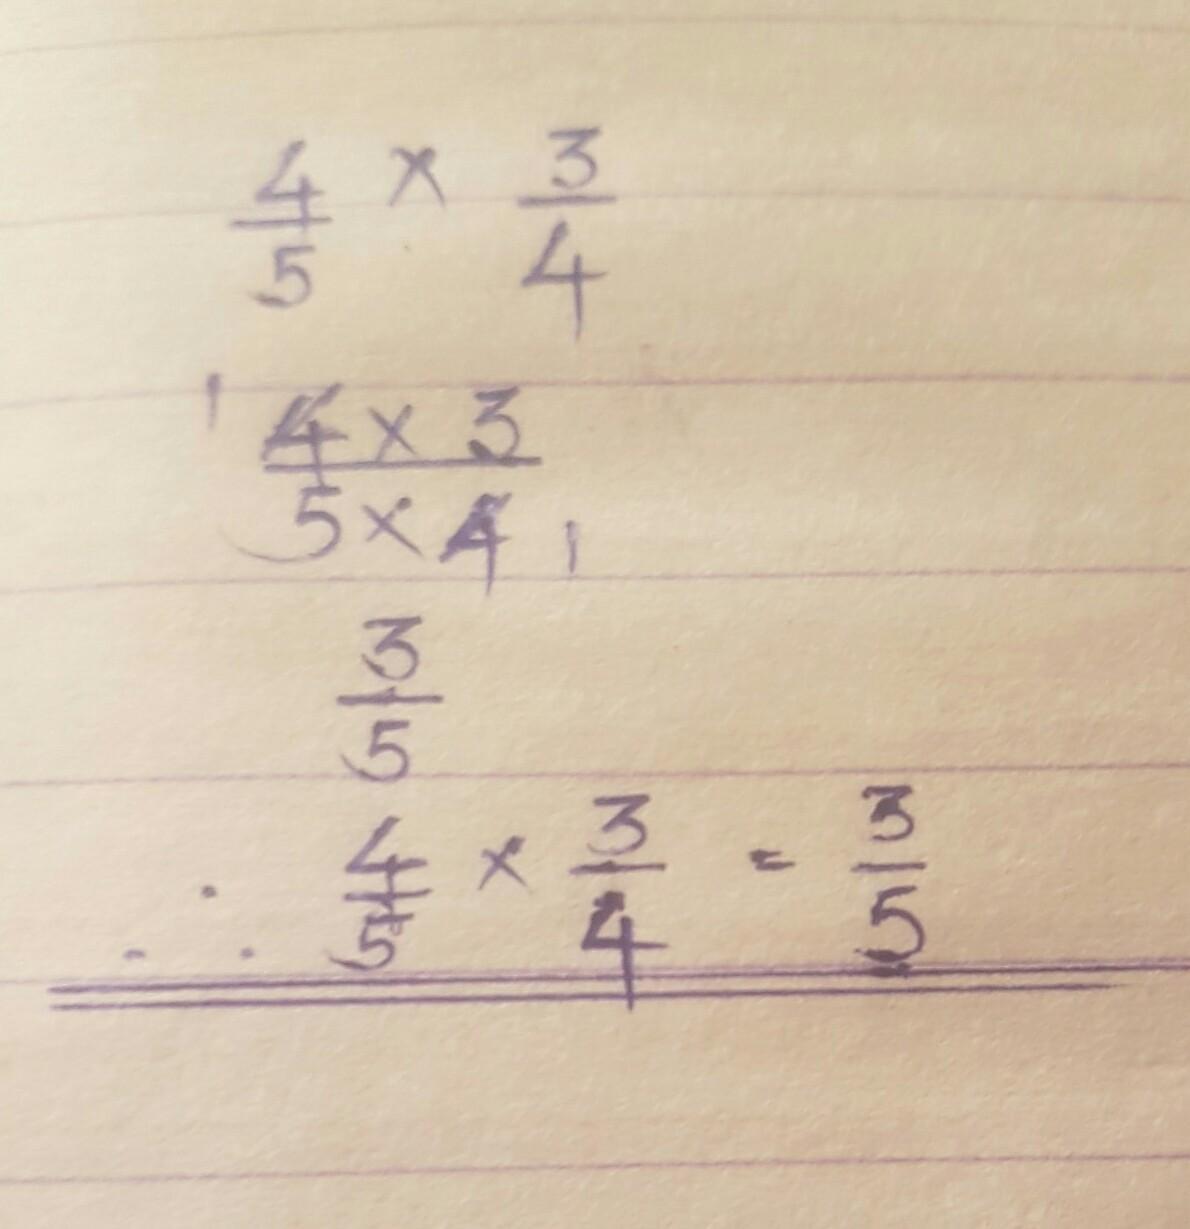 4/5 × 3/4
1 4 × 3 / 5 × 4 1
3/5
∴ 4/5 × 3/4 = 3/5